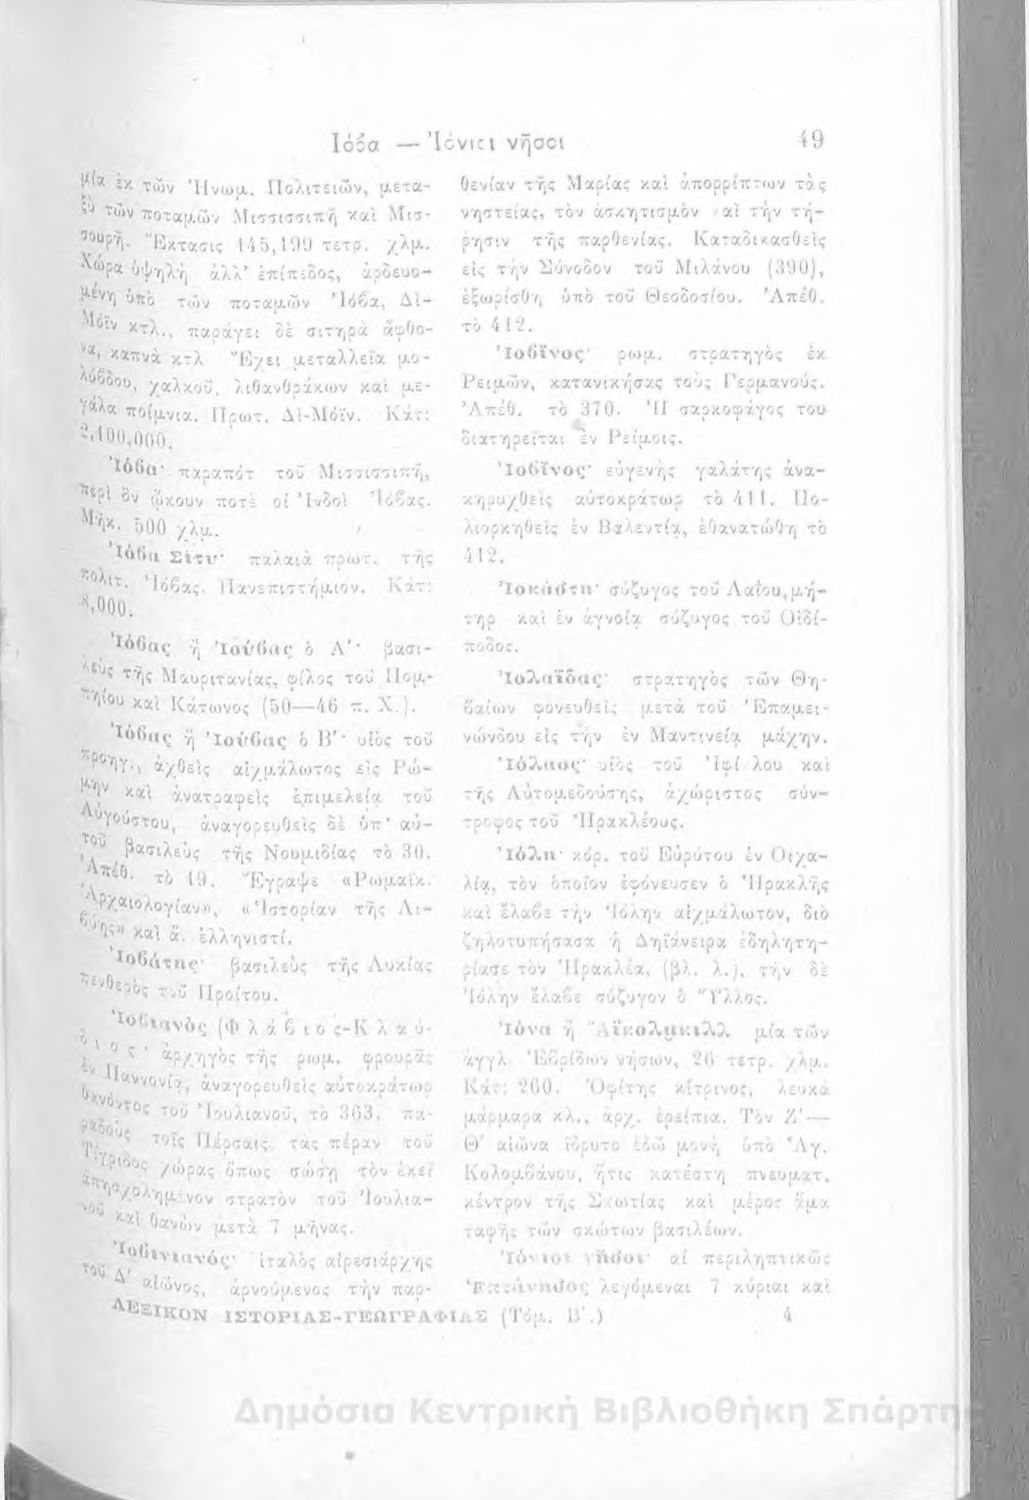 Ἰόβα — Ἰόνιοι νῆσοι 49
μία ἐκ τῶν Ἡνωμ. Πολιτειῶν, μετα-
ξὺ τῶν ποταμῶν Μισσισσιπῆ καὶ Μισ-
σουρῆ. Ἔκτασις 145,199 τετρ. χλμ.
Χώρα ὑψηλὴ ἀλλ' ἐπίπεδος, ἀρδευο-
μένη ὑπὸ τῶν ποταμῶν Ἰόβα, Δὶ-
Μόϊν κτλ., παράγει δὲ σιτηρὰ ἄφθο-
να, καπνὰ κτλ Ἔχει μεταλλεῖα μο-
λύβδου, χαλκοῦ, λιθανθράκων καὶ με-
γάλα ποίμνια. Πρωτ. Δὶ-Μόϊν. Κάτ:
2,400,000.
Ἰόβα· παραπότ τοῦ Μισσισσιπῆ,
περὶ ὃν ᾤκουν ποτὲ οἱ Ἰνδοὶ Ἰόβας.
Μῆκ. 500 χλμ.
Ἰόβα Σίτυ· παλαιὰ πρωτ. τῆς
πολιτ. Ἰόβας. Πανεπιστήμιον. Κάτ:
8,000.
Ἰόβας ἢ Ἰούβας ὁ Α΄· βασι-
λεὺς τῆς Μαυριτανίας, φίλος τοῦ Πομ-
πηίου καὶ Κάτωνος (50—46 π. Χ.).
Ἰόβας ἢ Ἰούβας ὁ Β΄· υἱὸς τοῦ
προηγ., ἀχθεὶς αἰχμάλωτος εἰς Ῥώ-
μην καὶ ἀνατραφεὶς ἐπιμελείᾳ τοῦ
Αὐγούστου, ἀναγορευθεὶς δὲ ὑπ' αὐ-
τοῦ βασιλεὺς τῆς Νουμιδίας τὸ 30.
Ἀπέθ. τὸ 19. Ἔγραψε «Ῥωμαϊκ.
Ἀρχαιολογίαν», «Ἱστορίαν τῆς Λι-
βύης» καὶ ἄ. ἑλληνιστί.
Ἰοβάτης· βασιλεὺς τῆς Λυκίας
πενθερὸς τοῦ Προίτου.
Ἰοβιανὸς (Φλάβιος-Κλαύ-
διος· ἀρχηγὸς τῆς ρωμ. φρουρᾶς
ἐν Παννονίᾳ, ἀναγορευθεὶς αὐτοκράτωρ
θανόντος τοῦ Ἰουλιανοῦ, τὸ 363, πα-
ραδοὺς τοῖς Πέρσαις τὰς πέραν τοῦ
Τίγριδος χώρας ὅπως σώσῃ τὸν ἐκεῖ
ἀπησχολημένον στρατὸν τοῦ Ἰουλια-
νοῦ καὶ θανὼν μετὰ 7 μῆνας.
Ἰοβινιανός· ἰταλὸς αἱρεσιάρχης
τοῦ Δ΄ αἰῶνος, ἀρνούμενος τὴν παρ-
θενίαν τῆς Μαρίας καὶ ἀπορρίπτων τὰς
νηστείας, τὸν ἀσκητισμὸν καὶ τὴν τή-
ρησιν τῆς παρθενίας. Καταδικασθεὶς
εἰς τὴν Σύνοδον τοῦ Μιλάνου (390),
ἐξωρίσθη ὑπὸ τοῦ Θεοδοσίου. Ἀπέθ.
τὸ 412.
Ἰοβῖνος· ρωμ. στρατηγὸς ἐκ
Ρειμῶν, κατανικήσας τοὺς Γερμανούς.
Ἀπέθ. τὸ 370. Ἡ σαρκοφάγος του
διατηρεῖται ἐν Ρείμοις.
Ἰοβῖνος· εὐγενὴς γαλάτης ἀνα-
κηρυχθεὶς αὐτοκράτωρ τὸ 411. Πο-
λιορκηθεὶς ἐν Βαλεντίᾳ, ἐθανατώθη τὸ
412.
Ἰοκάστη· σύζυγος τοῦ Λαΐου, μή-
τηρ καὶ ἐν ἀγνοίᾳ σύζυγος τοῦ Οἰδί-
ποδος.
Ἰολαΐδας· στρατηγὸς τῶν Θη-
βαίων φονευθεὶς μετὰ τοῦ Ἐπαμει-
νώνδου εἰς τὴν ἐν Μαντινείᾳ μάχην.
Ἰόλαος· υἱὸς τοῦ Ἰφί λου καὶ
τῆς Αὐτομεδούσης, ἀχώριστος σύν-
τροφος τοῦ Ἡρακλέους.
Ἰόλη· κόρ. τοῦ Εὐρύτου ἐν Οἰχα-
λίᾳ, τὸν ὁποῖον ἐφόνευσεν ὁ Ἡρακλῆς
καὶ ἔλαβε τὴν Ἰόλην αἰχμάλωτον, διὸ
ζηλοτυπήσασα ἡ Δηϊάνειρα ἐδηλητη-
ρίασε τὸν Ἡρακλέα, (βλ. λ.), τὴν δὲ
Ἰόλην ἔλαβε σύζυγον ὁ Ὕλλος.
Ἰόνα ἢ Ἀϊκολμκιλλ μία τῶν
ἀγγλ. Ἑβρίδων νήσων, 26 τετρ. χλμ.
Κάτ: 260. Ὀφίτης κίτρινος, λευκὰ
μάρμαρα κλ., ἀρχ. ἐρείπια. Τὸν Ζ΄—
Θ΄ αἰῶνα ἵδρυτο ἐδῶ μονὴ ὑπὸ Ἁγ.
Κολομβάνου, ἥτις κατέστη πνευματ.
κέντρον τῆς Σκωτίας καὶ μέρος ἅμα
ταφῆς τῶν σκώτων βασιλέων.
Ἰόνιοι νῆσοι· αἱ περιληπτικῶς
Ἑπτάνησος λεγόμεναι 7 κύριαι καὶ
ΛΕΞΙΚΟΝ ΙΣΤΟΡΙΑΣ-ΓΕΩΓΡΑΦΙΑΣ (Τόμ. Β΄.) 4
Δημόσια Κεντρική Βιβλιοθήκη Σπάρτης